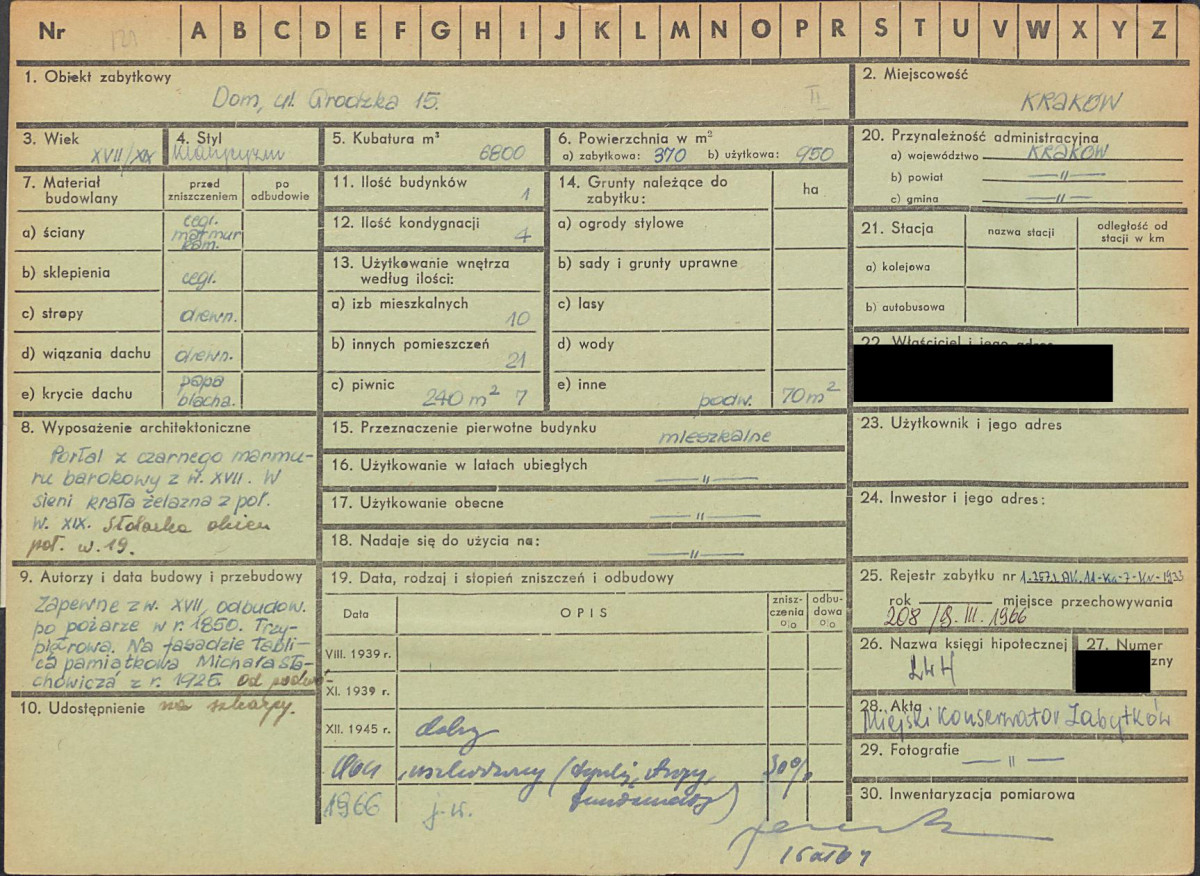 Nr A B C D E F G H I J K L M N O P R S T U V W X Y Z
1. Obiekt zabytkowy
Dom, ul. Grodzka 15. II
2. Miejscowość
KRAKÓW
3. Wiek
XVII/XIX
4. Styl
Klasycyzm
5. Kubatura m³
6800
6. Powierzchnia w m²
a) zabytkowa: 370 b) użytkowa: 950
20. Przynależność administracyjna
a) województwo KRAKÓW
b) powiat —〃—
c) gmina —〃—
7. Materiał budowlany
przed zniszczeniem
po odbudowie
a) ściany
cegl.
marmur
kam.
b) sklepienia cegl.
c) stropy drewn.
d) wiązania dachu drewn.
e) krycie dachu
papa
blacha.
11. Ilość budynków
1
12. Ilość kondygnacji
4
13. Użytkowanie wnętrza
według ilości:
a) izb mieszkalnych
10
b) innych pomieszczeń
21
c) piwnic
240 m² 7
14. Grunty należące do
zabytku:
ha
a) ogrody stylowe
b) sady i grunty uprawne
c) lasy
d) wody
e) inne
podw. 70 m²
21. Stacja
nazwa stacji
odległość od
stacji w km
a) kolejowa
b) autobusowa
22. Właściciel i jego adres
8. Wyposażenie architektoniczne
Portal z czarnego marmu-
ru barokowy z w. XVII. W
sieni krata żelazna z poł.
w. XIX. Stolarka okien
poł. w. 19.
15. Przeznaczenie pierwotne budynku mieszkalne
16. Użytkowanie w latach ubiegłych —〃—
17. Użytkowanie obecne —〃—
18. Nadaje się do użycia na: —〃—
23. Użytkownik i jego adres
24. Inwestor i jego adres:
9. Autorzy i data budowy i przebudowy
Zapewne z w. XVII, odbudow.
po pożarze w r. 1850. Trzy-
piętrowa. Na fasadzie tabli-
ca pamiątkowa Michała Sta-
chowicza z r. 1925. od podwó-
10. Udostępnienie
na szkarpy.
19. Data, rodzaj i stopień zniszczeń i odbudowy
Data
OPIS
znisz-
czenia
%
odbu-
dowa
%
VIII. 1939 r.
XI. 1939 r.
XII. 1945 r. dobry
uszkodzony (tynki, stropy, 30%
fundamenty)
1966 j.w.
25. Rejestr zabytku nr
rok miejsce przechowywania
208 / 8. III. 1966
26. Nazwa księgi hipotecznej
L44
27. Numer
zny
28. Akta
Miejski Konserwator Zabytków
29. Fotografie —〃—
30. Inwentaryzacja pomiarowa